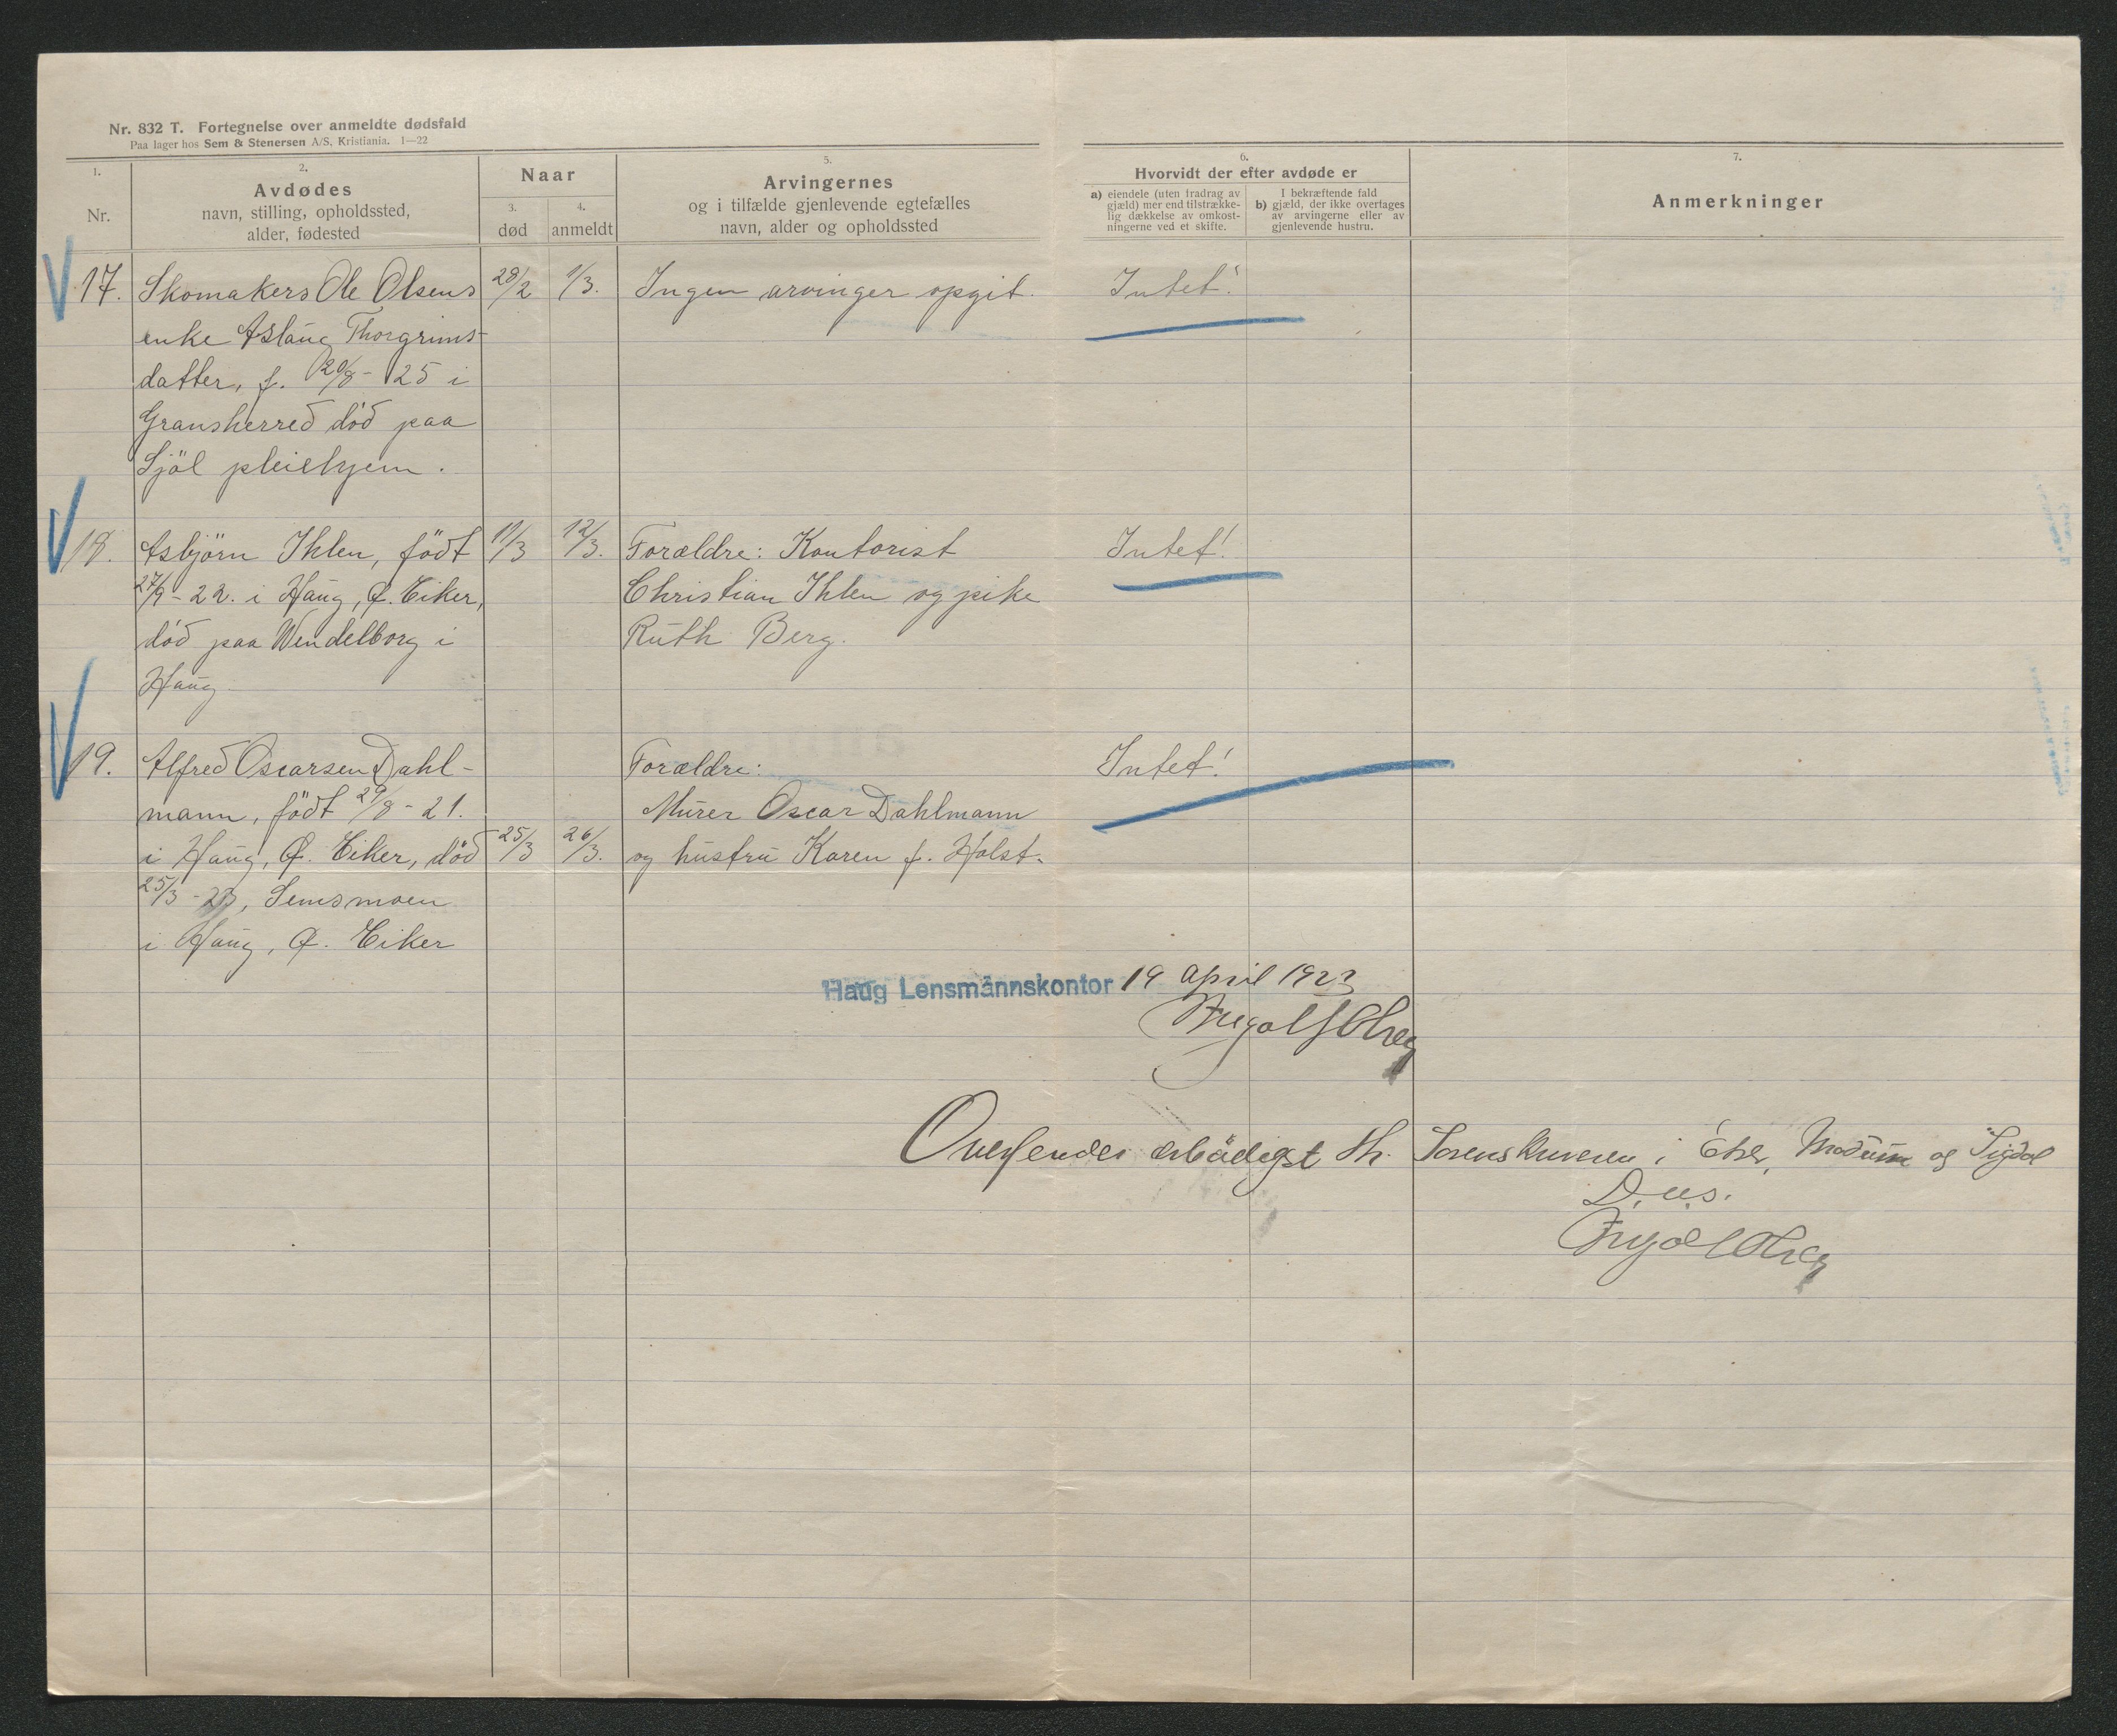 Nr. 832 T. Fortegnelse over anmeldte dødsfald
Paa lager hos Sem & Stenersen A/S, Kristiania. 1—22
1.
Nr.
2.
Avdødes
navn, stilling, opholdssted,
alder, fødested
Naar
3.
død
4.
anmeldt
5.
Arvingernes
og i tilfælde gjenlevende egtefælles
navn, alder og opholdssted
6.
Hvorvidt der efter avdøde er
a) eiendele (uten fradrag av
gjæld) mer end tilstrække-
lig dækkelse av omkost-
ningerne ved et skifte.
I bekræftende fald
b) gjæld, der ikke overtages
av arvingerne eller av
gjenlevende hustru.
7.
Anmerkninger
17. Skomakers Ole Olsens 28/2 1/3. Ingen arvinger opgit. Intet!
enke Aslaug Thorgrims-
datter, f. 20/8 - 25 i
Gransherred död paa
Sjöl pleiehjem.
18. Asbjörn Ihlen, födt 11/3 12/3. Forældre: Kontorist Intet!
27/9 - 22. i Haug, Ø. Eiker, Christian Ihlen og pike
död paa Wendelborg i Ruth Berg.
Haug
19. Alfred Oscarsen Dahl- Forældre: Intet!
mann, födt 29/8 - 21. Murer Oscar Dahlmann
i Haug, Ø. Eiker, död 25/3 26/3. og hustru Karen f. Holst.
25/3 - 23, Semsmoen
i Haug, Ø. Eiker
Haug Lensmannskontor 19 april 1923
Oversendes ærbödigst Hr. Sorenskriveren i Eker, Modum og Sigdal
D. u.s.